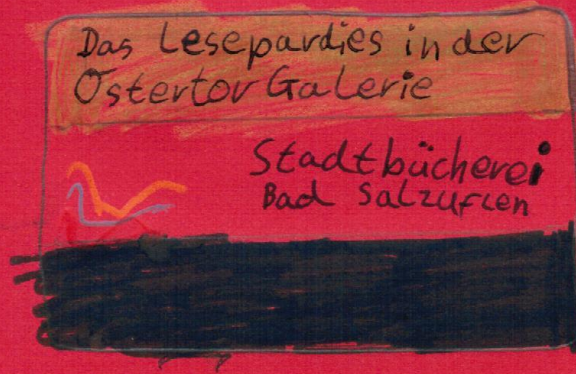 Das Lesepardies in der
Ostertor Galerie
Stadtbücherei
Bad Salzuflen